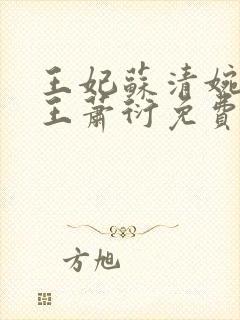 王妃蘇清婉
王蕭衍免費
方旭